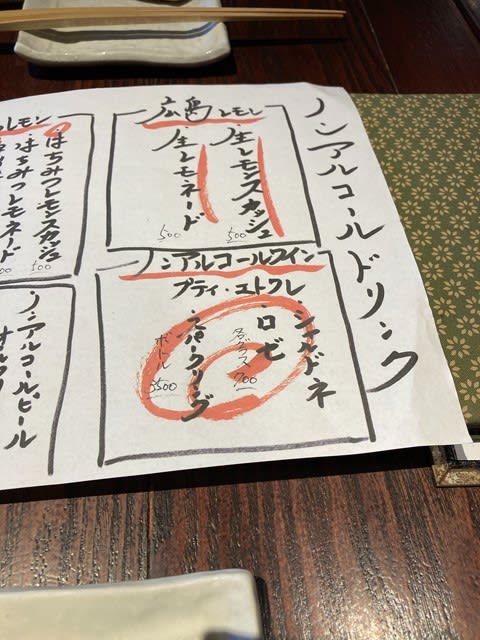 ノンアルコールドリンク
広島レモン
・生レモンスカッシュ
500
・生レモネード
500
ノンアルコールワイン
プティ・エトワレ
・シャルドネ
・ロゼ
・スパークリング
各グラス
700
ボトル
3500
レモン
・はちみつレモンスカッシュ
500
・はちみつレモネード
500
ノンアルコールビール